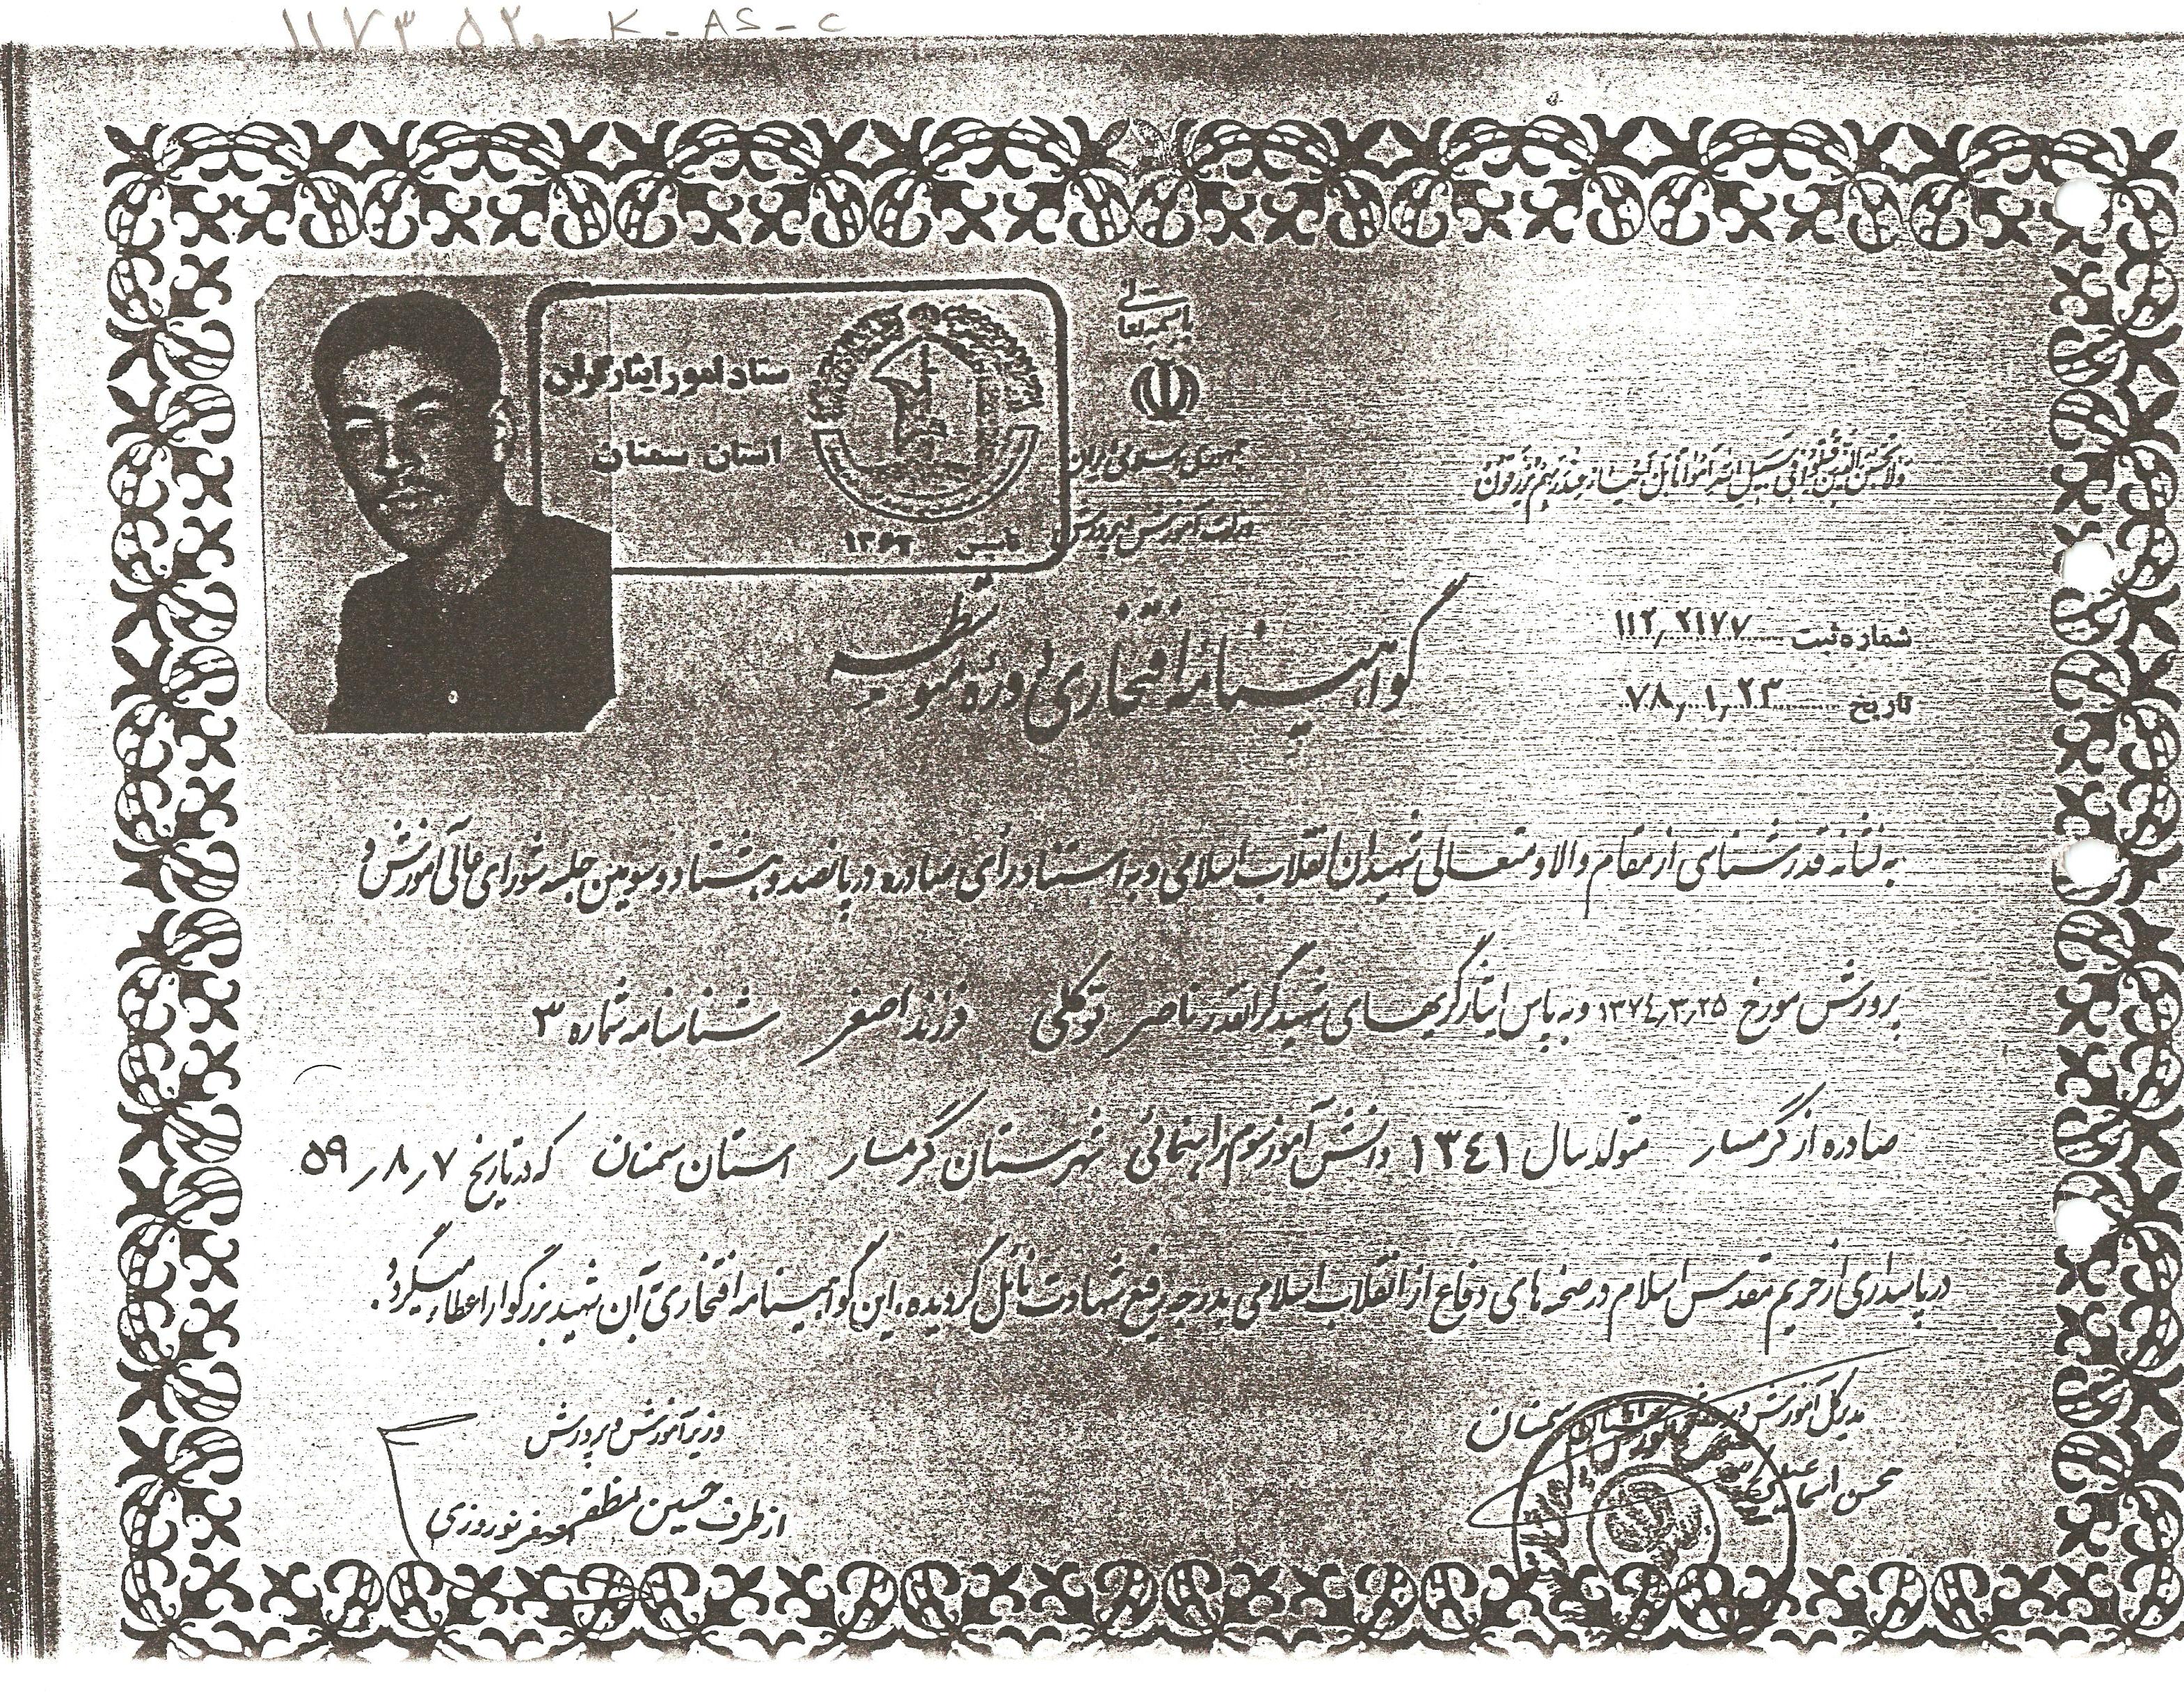 ۱۱۷۳۵۲۰ - K - AS - C
باسمه تعالی
جمهوری اسلامی ایران
وزارت آموزش و پرورش
ستاد امور ایثارگران
استان سمنان
تاسیس ۱۳۶۳
ولا تحسبن الذین قتلوا فی سبیل الله امواتا بل احیاء عند ربهم یرزقون
شماره ثبت ۱۱۲٫۲۱۷۷
تاریخ ۷۸٫۱٫۲۳
گواهینامه افتخاری دوره متوسطه
به نشانه قدرشناسی از مقام والا و متعالی شهیدان انقلاب اسلامی و به استناد رای صادره در پانصد و هشتاد و سومین جلسه شورای عالی آموزش و
پرورش مورخ ۱۳۷۴٫۳٫۲۵ و به پاس ایثارگریهای شهید گرانقدر ناصر توکلی فرزند اصغر شناسنامه شماره ۳
صادره از گرمسار متولد سال ۱۳۴۱ دانش آموز سوم راهنمائی شهرستان گرمسار استان سمنان که در تاریخ ۵۹٫۸٫۷
در پاسداری از حریم مقدس اسلام در صحنه های دفاع از انقلاب اسلامی بدرجه رفیع شهادت نائل گردیده، این گواهینامه افتخاری به آن شهید بزرگوار اعطاء میگردد.
مدیرکل آموزش و پرورش استان سمنان
محسن
وزیر آموزش و پرورش
حسین مظفر
از طرف جعفر نوروزی